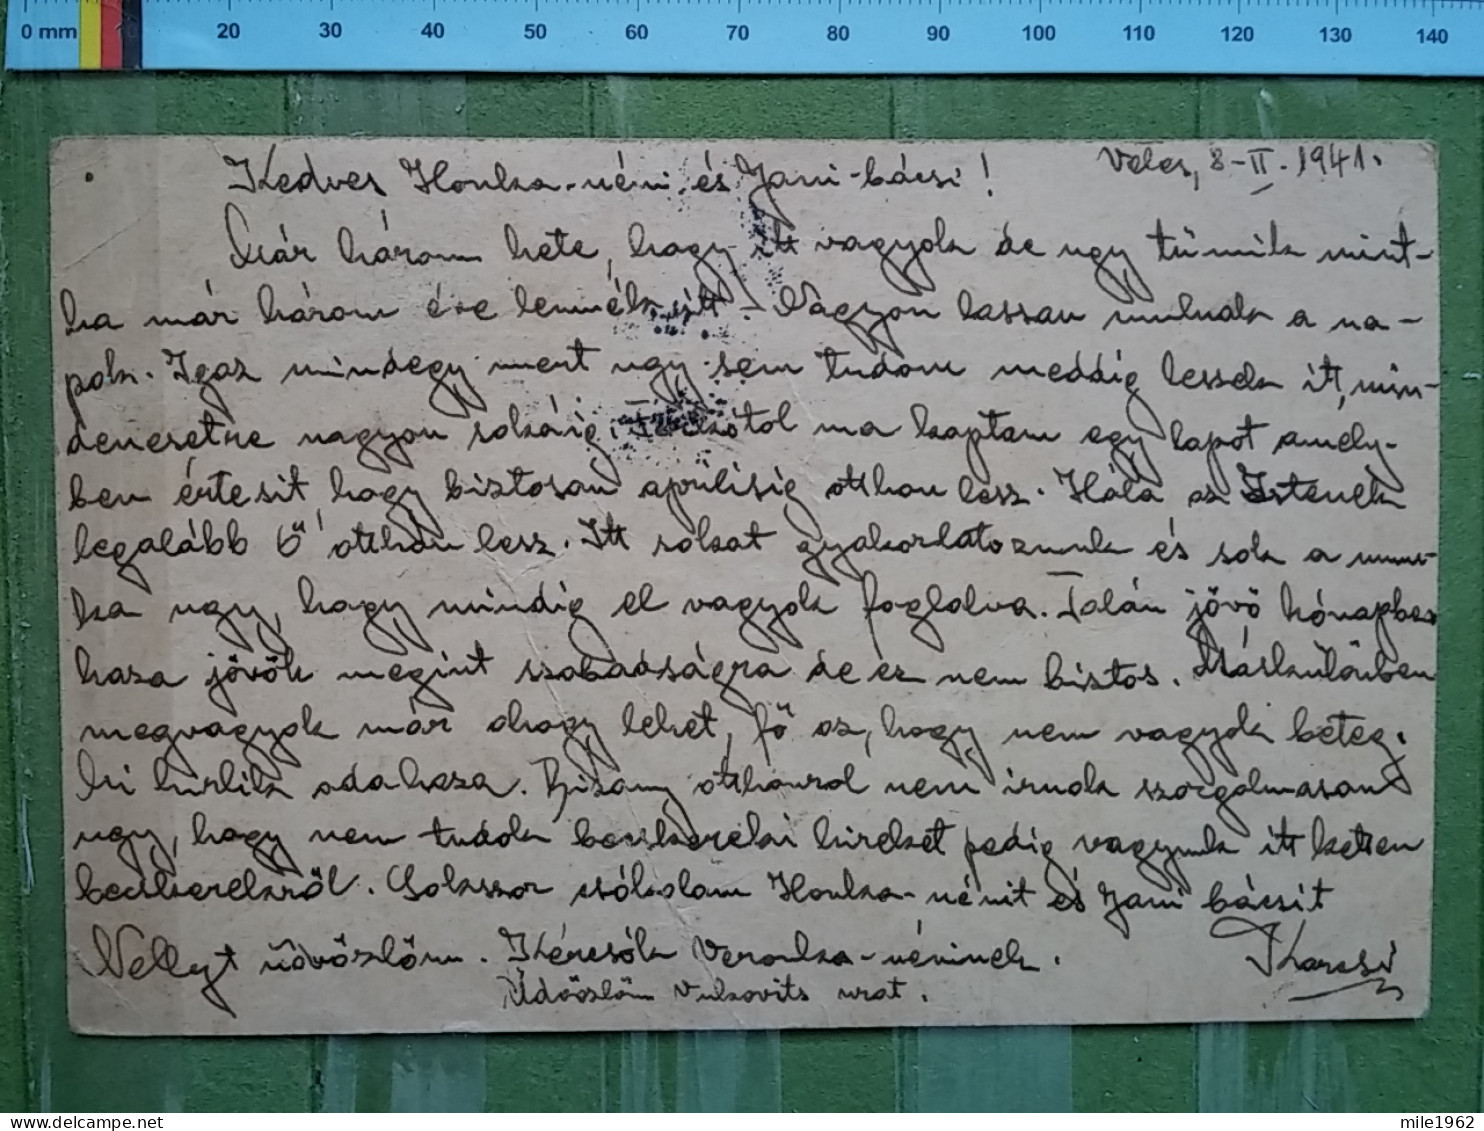 0 mm 10 20 30 40 50 60 70 80 90 100 110 120 130 140
Veles, 8-II-1941.
Kedves Ilonka-néni és Jani-bácsi!
Már három hete, hogy itt vagyok de ugy tünik mint-
ha már három éve lennék itt. Nagyon lassan mulnak a na-
pok. Igaz mindegy mert ugy sem tudom meddig leszek itt, min-
denesetre nagyon sokáig. ma kaptam egy lapot amely-
ben értesit, hogy biztosan áprilisig otthon lesz. Hála az Istenek
legalább ő otthon lesz. Itt sokat gyakorlatozunk és sok a mun-
ka ugy, hogy mindig el vagyok foglalva. Talán jövö hónapban
haza jövök megint szabadságra de ez nem biztos. Máskülönben
megvagyok már ahogy lehet, fö az, hogy nem vagyok beteg.
Mi hirlik odahaza. Bizony otthonrol nem irnak szorgalmasan
ugy, hogy nem tudok becskereki hireket pedig vagyunk itt ketten
becskerekről. Sokszor csókolom Ilonka-nénit és Jani bácsit
Nellyt üdvözlöm. Kézcsók Veronka-néninek. Karcsi
Üdvözlöm Vukovits urat.
mile1962